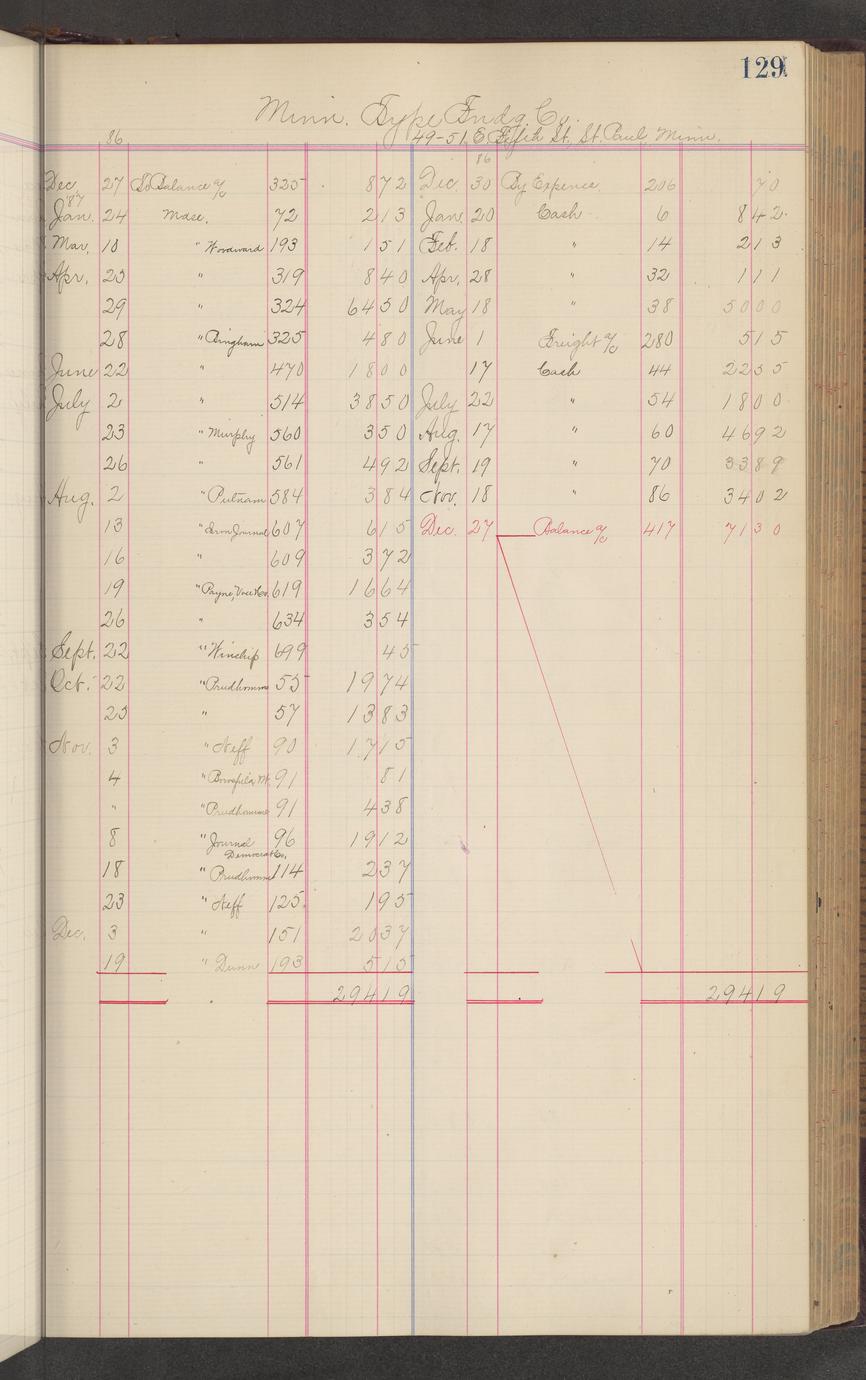 129
Minn. Type Fndg. Co.
49-51 E. Fifth St., St. Paul, Minn.
86
86
Dec. 27 To Balance a/c 325 8 72 Dec. 30 By Expence 206 70
'87
Jan. 24 Mdse. 72 2 13 Jan. 20 Cash 6 8 42
Mar. 10 " Woodward 193 1 51 Feb. 18 " 14 2 13
Apr. 25 " 319 8 40 Apr. 28 " 32 1 11
29 " 324 64 50 May 18 " 38 50 00
28 " Bingham 325 4 80 June 1 Freight a/c 280 5 15
June 22 " 470 18 00 17 Cash 44 22 55
July 2 " 514 38 50 July 22 " 54 18 00
23 " Murphy 560 3 50 Aug. 17 " 60 46 92
26 " 561 4 92 Sept. 19 " 70 33 89
Aug. 2 " Putnam 584 3 84 Nov. 18 " 86 34 02
13 " Journal 607 6 15 Dec. 27 Balance a/c 417 71 30
16 " 609 3 72
19 " Payne, 619 16 64
26 " 634 3 54
Sept. 22 " Winship 699 45
Oct. 22 " Prudhomme 55 19 74
25 " 57 13 83
Nov. 3 " Neff 90 17 15
4 " 91 81
" " Prudhomme 91 4 38
8 " Journal 96 19 12
Democrat Co.
18 " Prudhomme 114 2 37
23 " Neff 125 1 95
Dec. 3 " 151 20 37
19 " Dunn 193 5 15
294 19 294 19